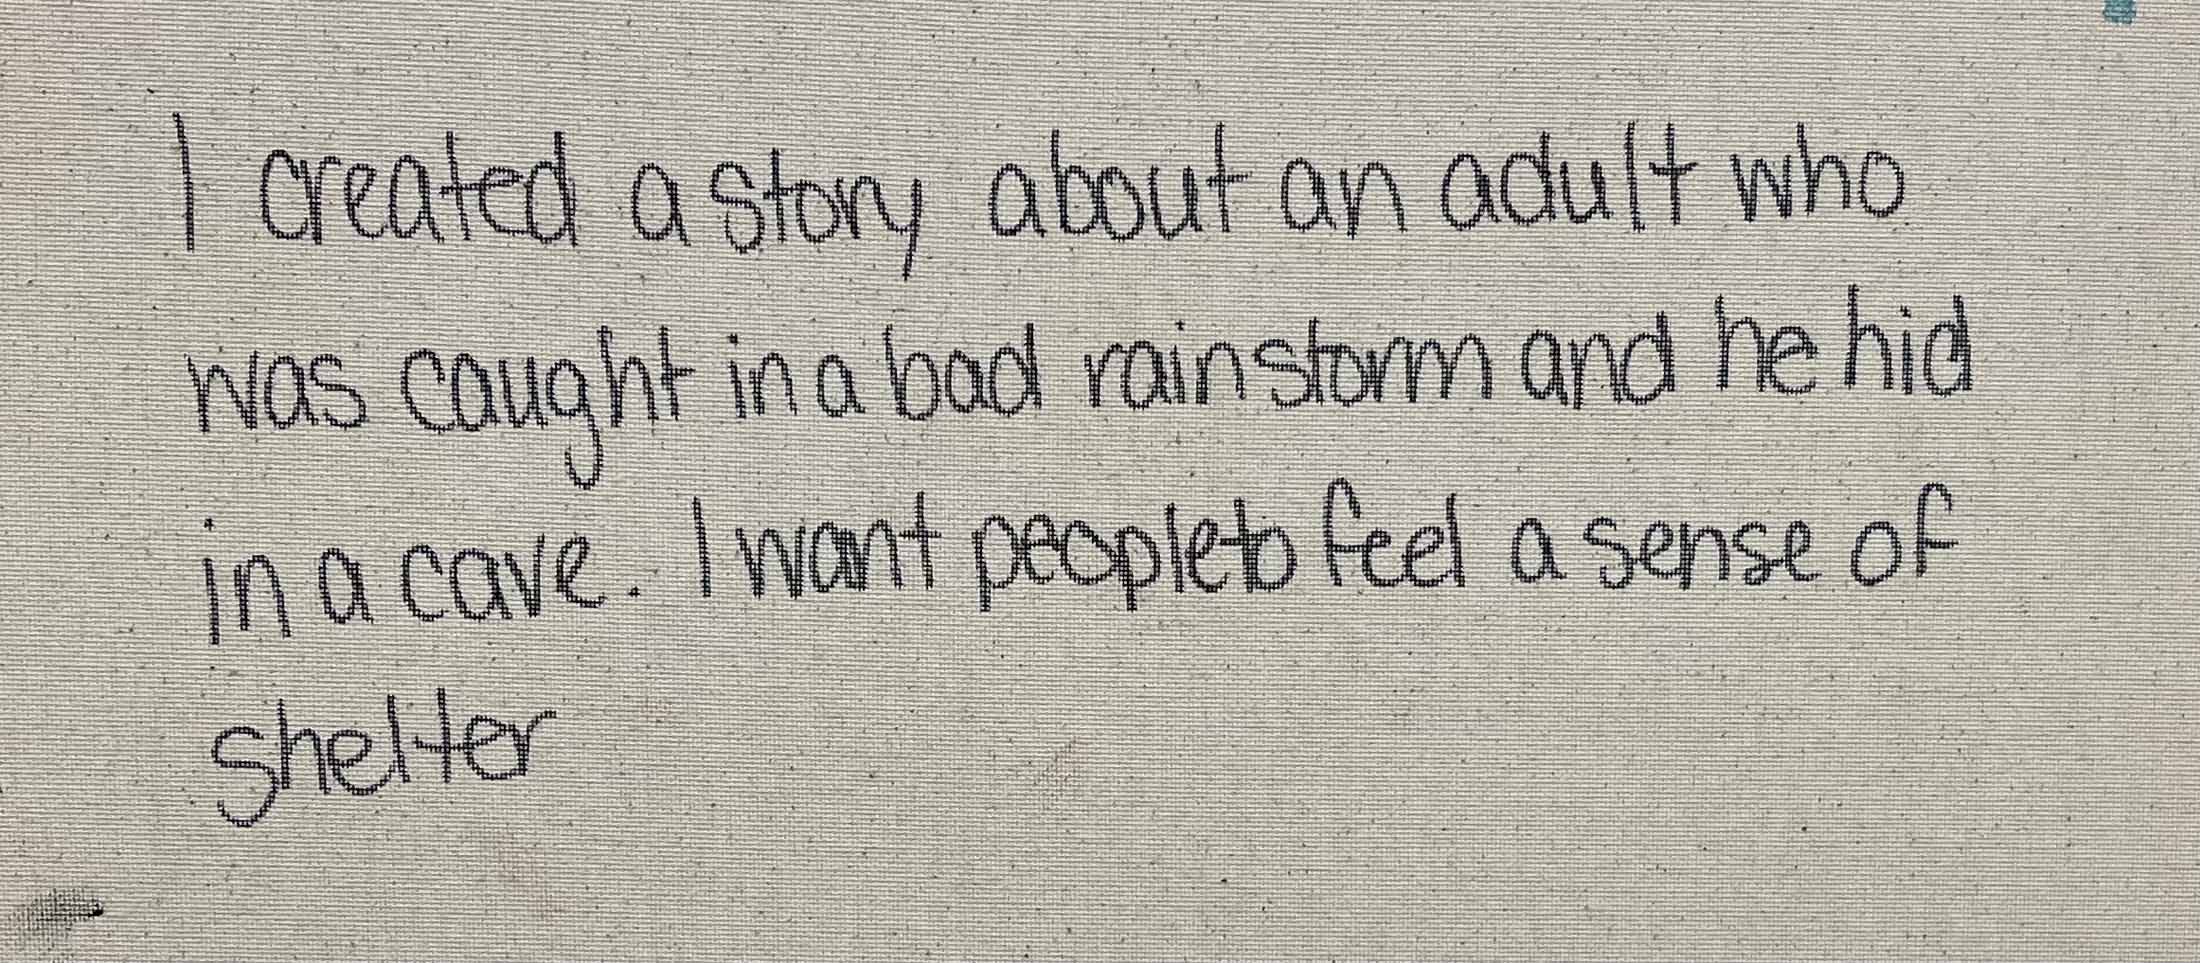 I created a story about an adult who
was caught in a bad rainstorm and he hid
in a cave. I want people to feel a sense of
shelter